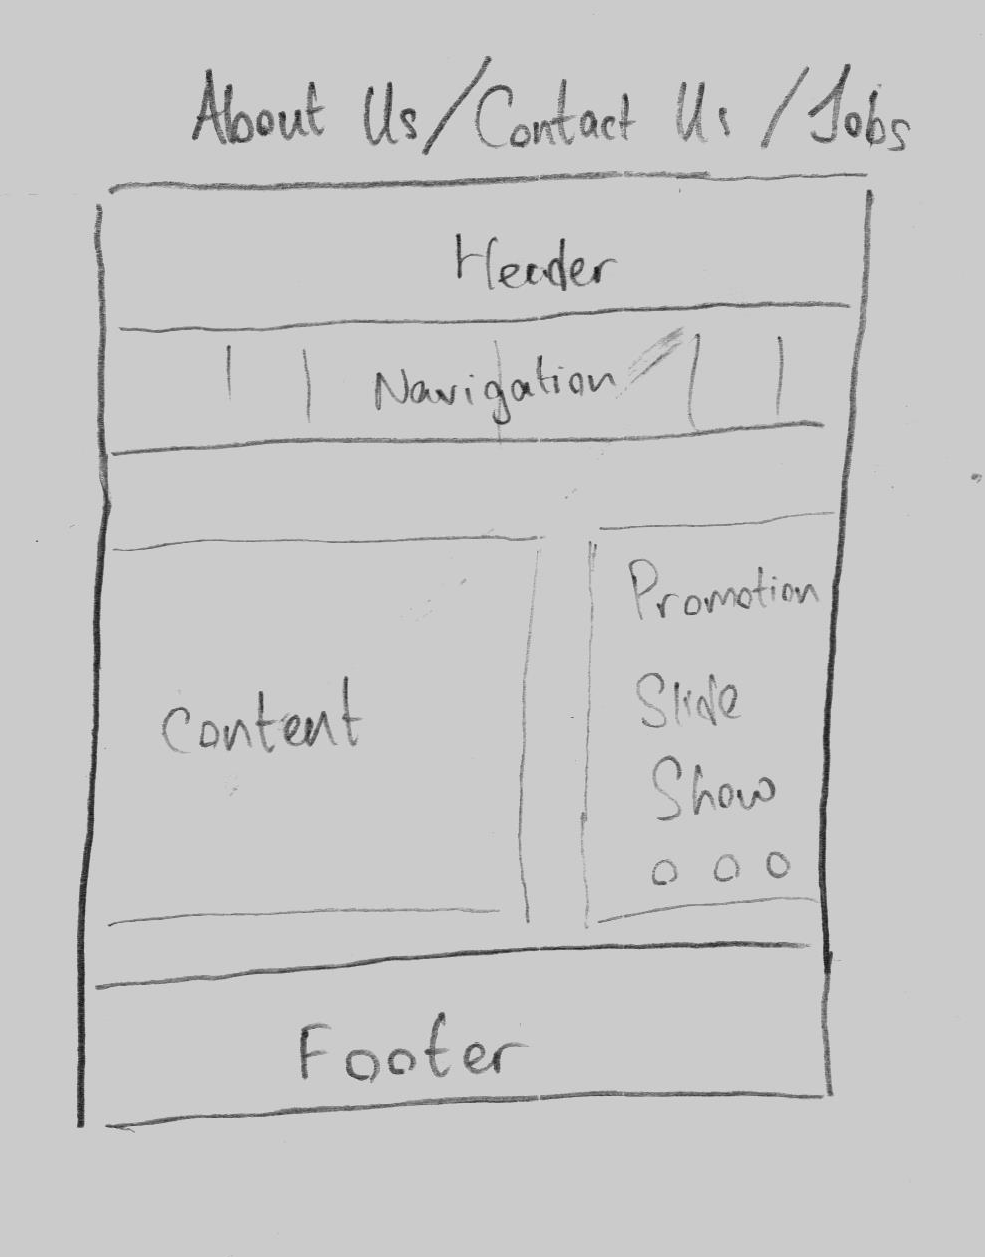 About Us/Contact Us/Jobs
Header
Navigation
Content
Promotion
Slide
Show
Footer